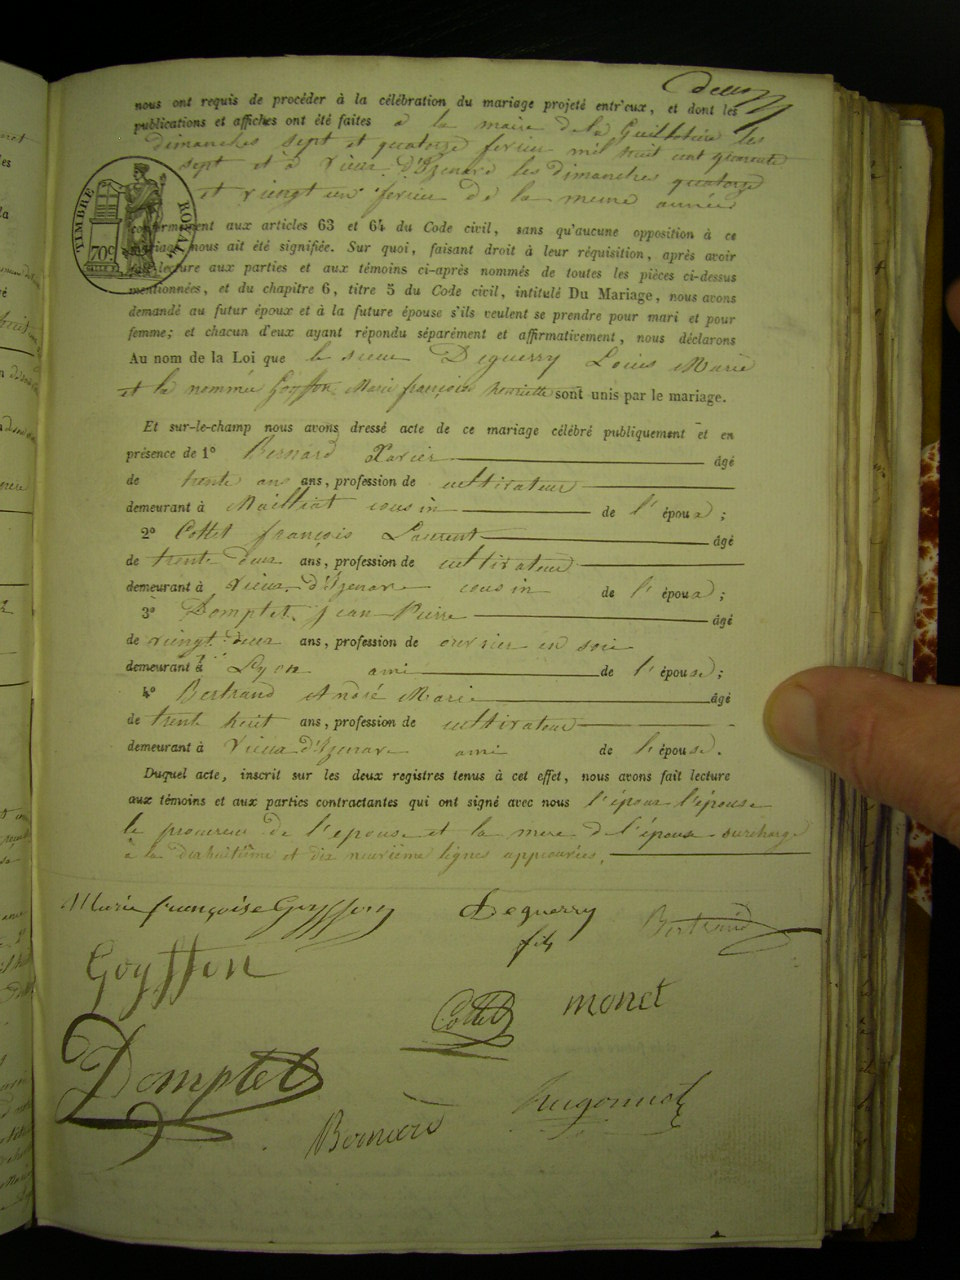 nous ont requis de procéder à la célébration du mariage projeté entr'eux, et dont les
publications et affiches ont été faites à la mairie de la Guillotière les
dimanches sept et quatorze fevrier mil huit cent quarante
sept et à Vieux d'Izenave les dimanches quatorze
et vingt un fevrier de la meme année
conformément aux articles 63 et 64 du Code civil, sans qu'aucune opposition à ce
mariage nous ait été signifiée. Sur quoi, faisant droit à leur réquisition, après avoir
fait lecture aux parties et aux témoins ci-après nommés de toutes les pièces ci-dessus
mentionnées, et du chapitre 6, titre 5 du Code civil, intitulé Du Mariage, nous avons
demandé au futur époux et à la future épouse s'ils veulent se prendre pour mari et pour
femme; et chacun d'eux ayant répondu séparément et affirmativement, nous déclarons
Au nom de la Loi que le sieur Deguerry Louis Marie
et la nommée Goyffon Marie françoise henriette sont unis par le mariage.
Et sur-le-champ nous avons dressé acte de ce mariage célébré publiquement et en
présence de 1° Bernard Xavier âgé
de trente ans ans, profession de cultivateur
demeurant à Mailliat cousin de l'époux;
2° Cottet françois Laurent âgé
de trente deux ans, profession de cultivateur
demeurant à Vieux d'Izenave cousin de l'époux;
3° Domptet Jean Pierre âgé
de vingt deux ans, profession de ouvrier en soie
demeurant à Lyon ami de l'épouse;
4° Bertrand André Marie âgé
de trente huit ans, profession de cultivateur
demeurant à Vieux d'Izenave ami de l'épouse.
Duquel acte, inscrit sur les deux registres tenus à cet effet, nous avons fait lecture
aux témoins et aux parties contractantes qui ont signé avec nous l'époux l'épouse
le procureur de l'epouse et la mere de l'époux surcharge
à la dixhuitième et dix neuvième lignes approuvées.
Marie françoise Goyffon Deguerry fils Bertrand
Goyffon
Cottet monet
Domptet
Hugonnet
TIMBRE ROYAL
70c